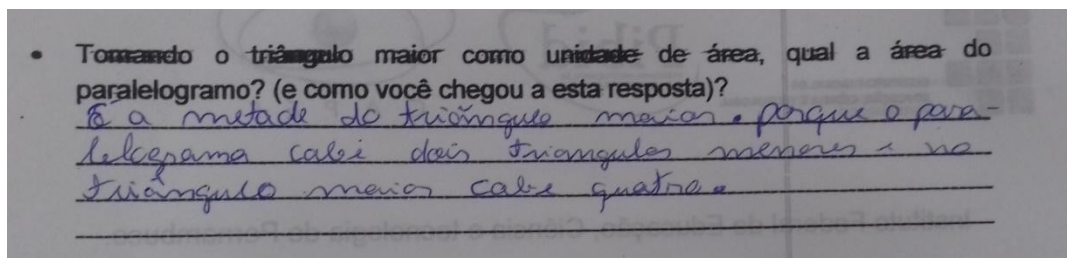 • Tomando o triângulo maior como unidade de área, qual a área do
paralelogramo? (e como você chegou a esta resposta)?
É a metade do triângulo maior. porque o para-
lelograma cabi dois triangulos menores e no
triângulo maior cabe quatro.